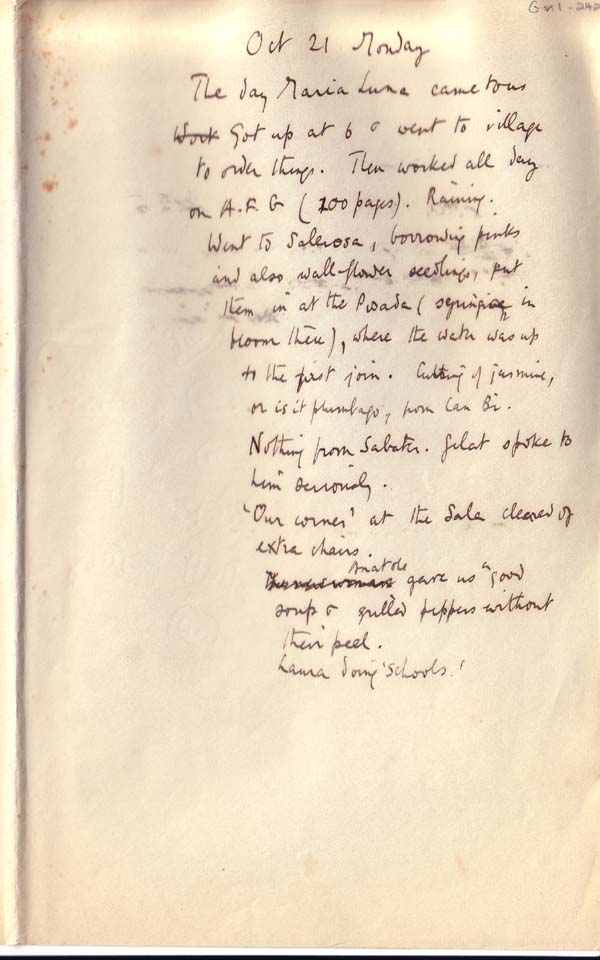 Gn1-242
Oct 21 Monday
The day Maria Luna came to us
Work Got up at 6 & went to village
to order things. Then worked all day
on A.F.G (200 pages). Raining.
Went to Salerosa, borrowing pinks
and also wall-flower seedlings, put
them in at the Posada (syringa in
bloom there), where the water was up
to the first join. Cutting of jasmine,
or is it plumbago, from Can Bi.
Nothing from Sabater. Gelat spoke to
him seriously.
'Our corner' at the Sala cleared of
extra chairs.
Anatole
gave us good
soup & grilled peppers without
their peel.
Laura doing 'Schools.'